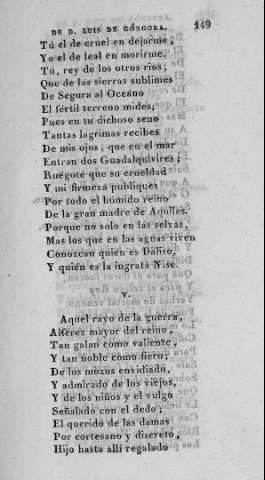 DE D. LUIS DE GÓNGORA. 149
Tú el de cruel en dejarme,
Yo el de leal en morirme.
Tú, rey de los otros rios,
Que de las sierras sublimes
De Segura al Oceano
El fértil terreno mides;
Pues en tu dichoso seno
Tantas lagrimas recibes
De mis ojos, que en el mar
Entran dos Guadalquivires;
Ruégote que su crueldad
Y mi firmeza publiques
Por todo el húmido reino
De la gran madre de Aquiles.
Porque no solo en las selvas,
Mas los que en las aguas viven
Conozcan quién es Daliso,
Y quién es la ingrata Nise.
V.
Aquel rayo de la guerra,
Alferez mayor del reino,
Tan galan como valiente,
Y tan noble como fiero;
De los mozos envidiado,
Y admirado de los viejos,
Y de los niños y el vulgo
Señalado con el dedo;
El querido de las damas
Por cortesano y discreto,
Hijo hasta allí regalado